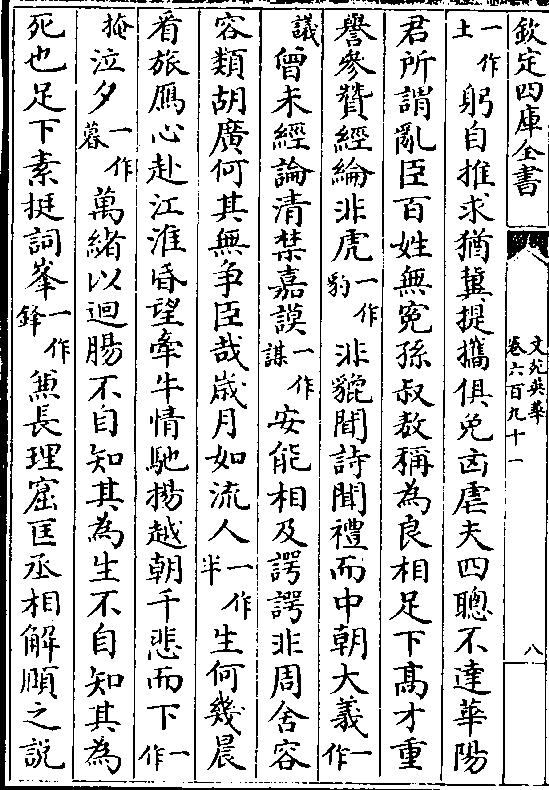 欽定四庫全書
文苑英華
卷六百九十一
八
一作土躬自推求猶冀提攜俱免凶虐夫四聰不達華陽
君所謂亂臣百姓無寃孫叔敖稱為良相足下髙才重
譽參贊經綸非虎一作豹非貔聞詩聞禮而中朝大義一作
議曾未經論清禁嘉謨一作謀安能相及諤諤非周舍容
容類胡廣何其無争臣哉歳月如流人一作半生何幾晨
看旅鴈心赴江淮昏望牽牛情馳揚越朝千悲而下一作
掩泣夕一作暮萬緒以迴腸不自知其為生不自知其為
死也足下素挺詞峯一作鋒兼長理窟匡丞相解頤之説